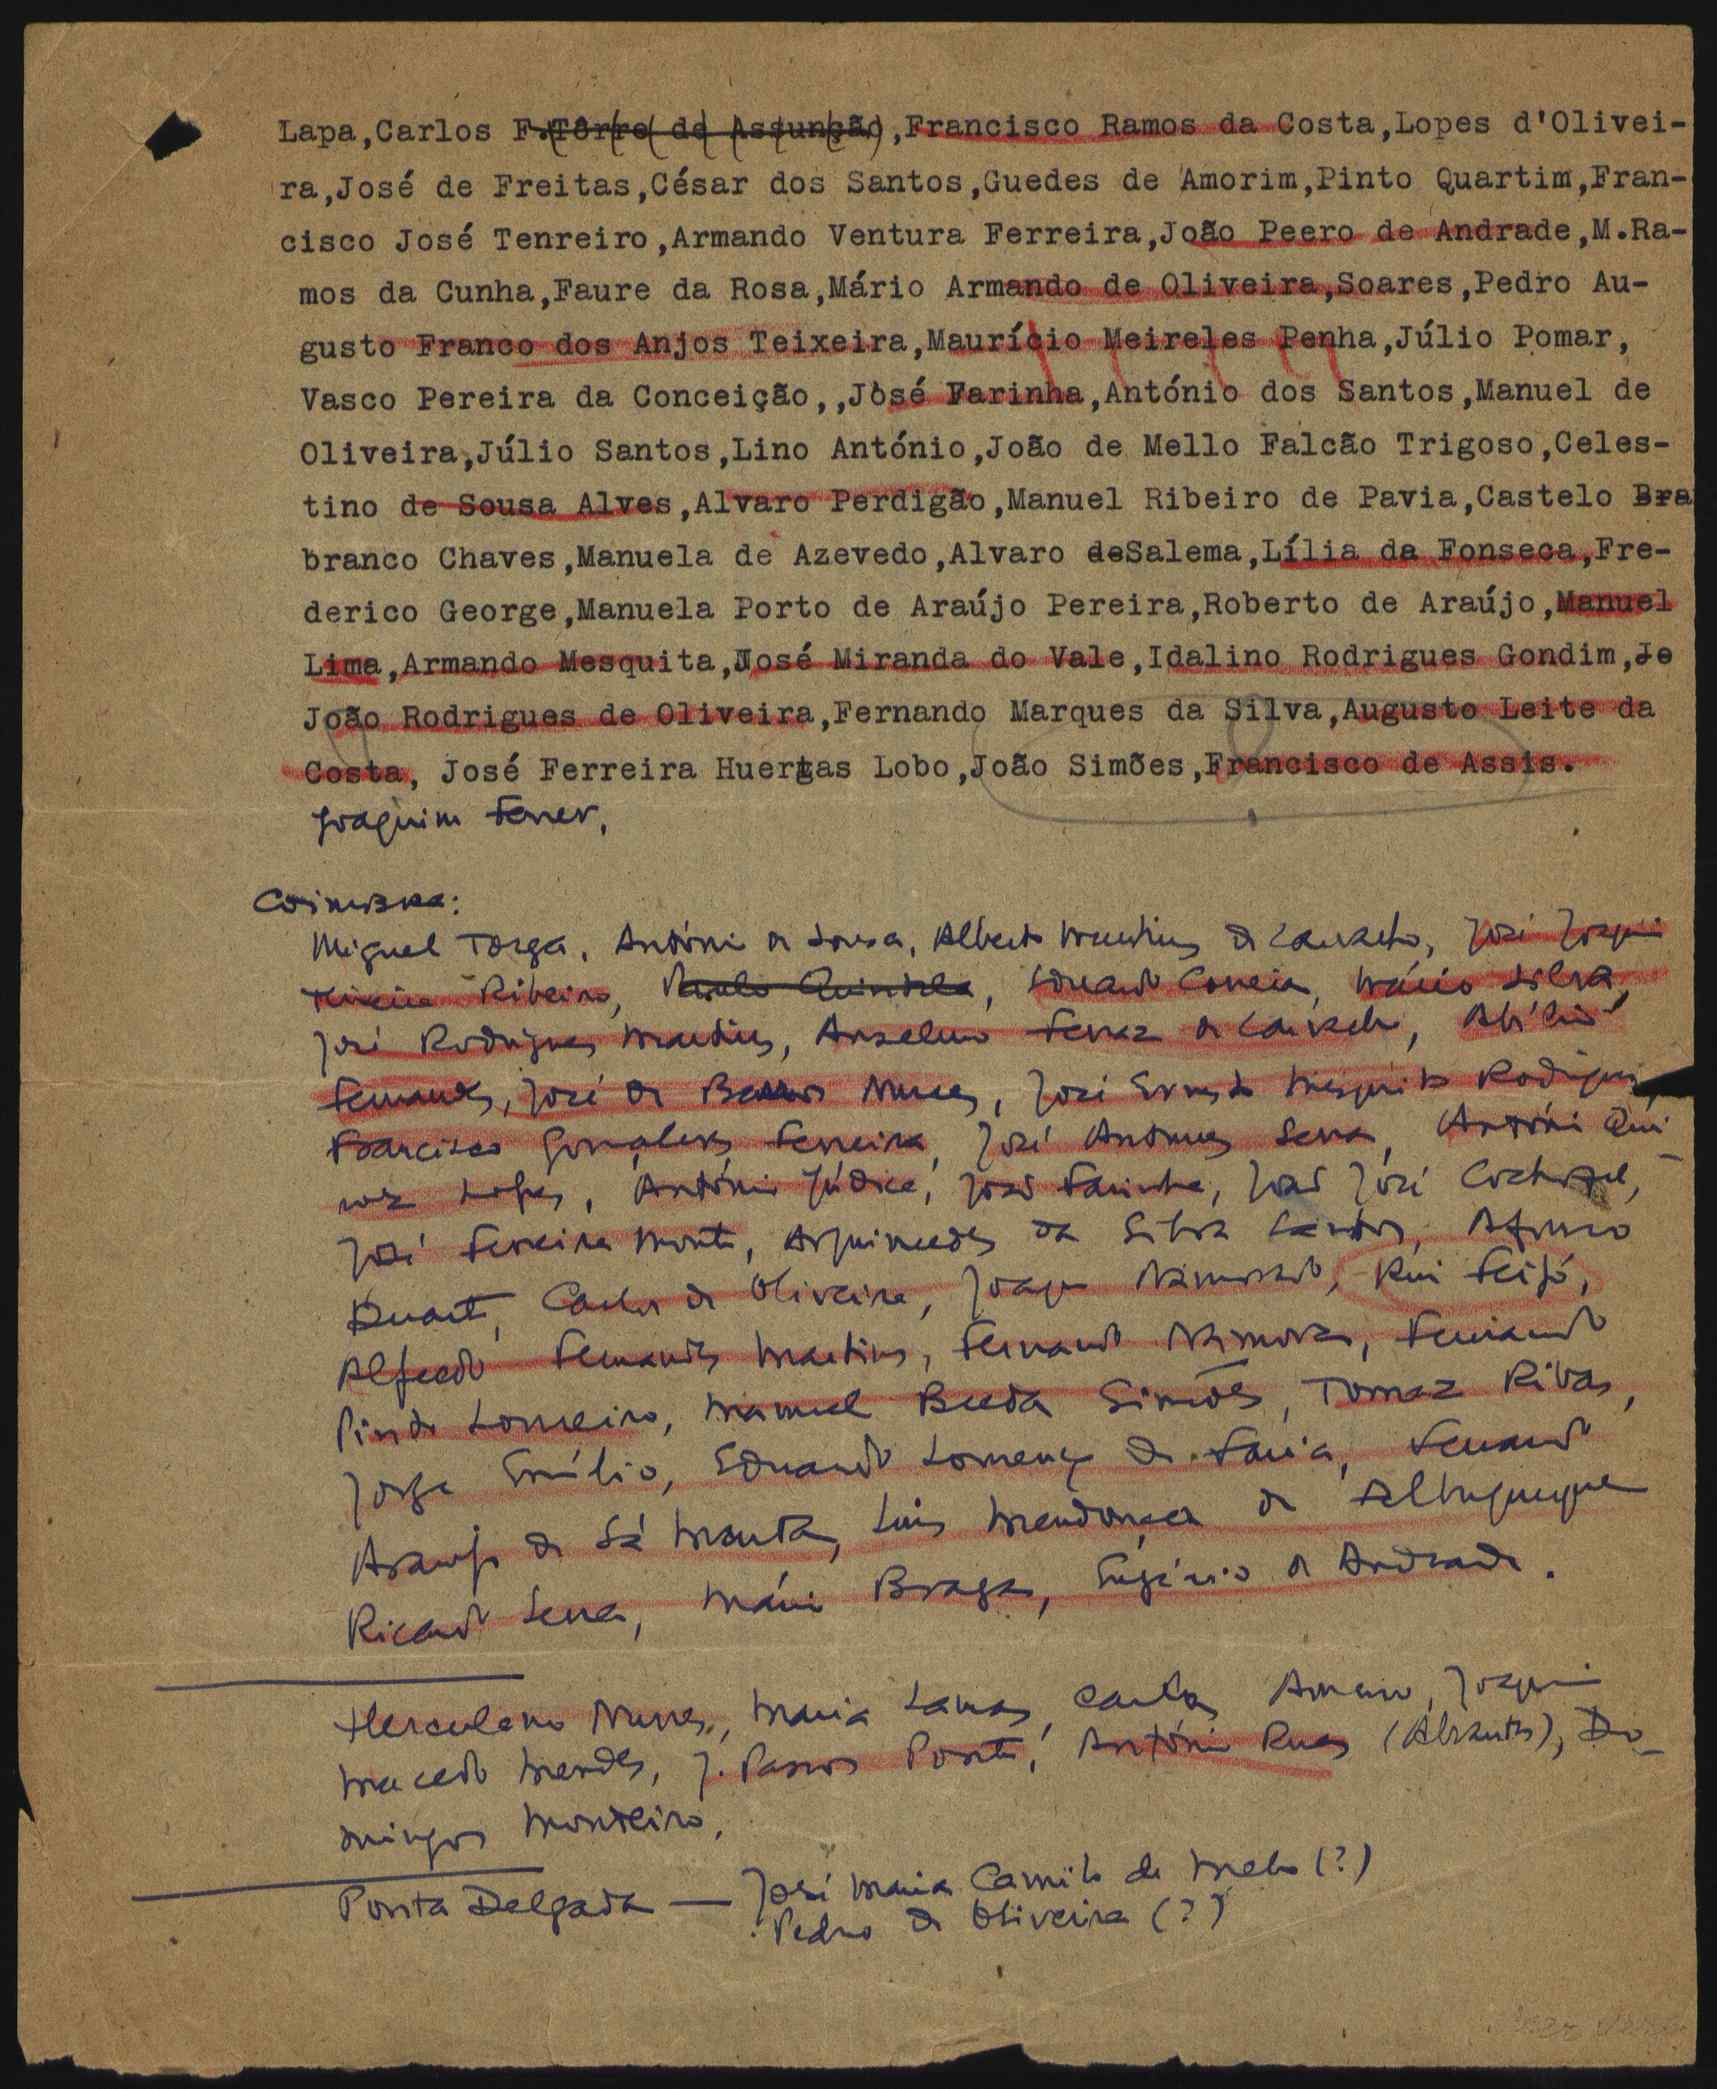 Lapa,Carlos F.(Tôrre de Assunção),Francisco Ramos da Costa,Lopes d'Olivei-
ra,José de Freitas,César dos Santos,Guedes de Amorim,Pinto Quartim,Fran-
cisco José Tenreiro,Armando Ventura Ferreira,João Peero de Andrade,M.Ra-
mos da Cunha,Faure da Rosa,Mário Armando de Oliveira,Soares,Pedro Au-
gusto Franco dos Anjos Teixeira,Maurício Meireles Penha,Júlio Pomar,
Vasco Pereira da Conceição,,José Farinha,António dos Santos,Manuel de
Oliveira,Júlio Santos,Lino António,João de Mello Falcão Trigoso,Celes-
tino de Sousa Alves,Alvaro Perdigão,Manuel Ribeiro de Pavia,Castelo Bra
branco Chaves,Manuela de Azevedo,Alvaro deSalema,Lília da Fonseca,Fre-
derico George,Manuela Porto de Araújo Pereira,Roberto de Araújo,Manuel
Lima,Armando Mesquita,José Miranda do Vale,Idalino Rodrigues Gondim,Jo
João Rodrigues de Oliveira,Fernando Marques da Silva,Augusto Leite da
Costa, José Ferreira Huertas Lobo,João Simões,Francisco de Assis.
Joaquim Ferrer,
Coimbra:
Miguel Torga, António de Sousa, Alberto Martins de Carvalho, José Joaquim
Teixeira Ribeiro, Paulo Quintela, Eduardo Correia, Mário Silva,
José Rodrigues Martins, Anselmo Ferraz de Carvalho, Abílio
Fernandes, José de Barros Nunes, José Ernesto Mesquita Rodrigues,
Francisco Gonçalves Ferreira, José Antunes Serra, António Qui
roz Lopes, António Júdice, João Farinha, João José Cochofel,
José Ferreira Monte, Arquimedes da Silva Santos, Afonso
Duarte, Carlos de Oliveira, Joaquim Namorado, Rui Feijó,
Alfredo Fernandes Martins, Fernando Namora, Fernando
Pinto Loureiro, Manuel Breda Simões, Tomaz Ribas,
Jorge Emílio, Eduardo Lourenço de Faria, Fernando
Araujo de Sá Marta, Luis Mendonça de Albuquerque
Ricardo Serra, Mário Braga, Eugénio de Andrade.
Herculano Nunes, Maria Lamas, Carlos Amaro, Joaquim
Macedo Mendes, J. Passos Ponte, António Rua (Abrantes), Do-
mingos Monteiro,
Ponta Delgada — José Maria Camilo de Melo (?)
Pedro de Oliveira (?)